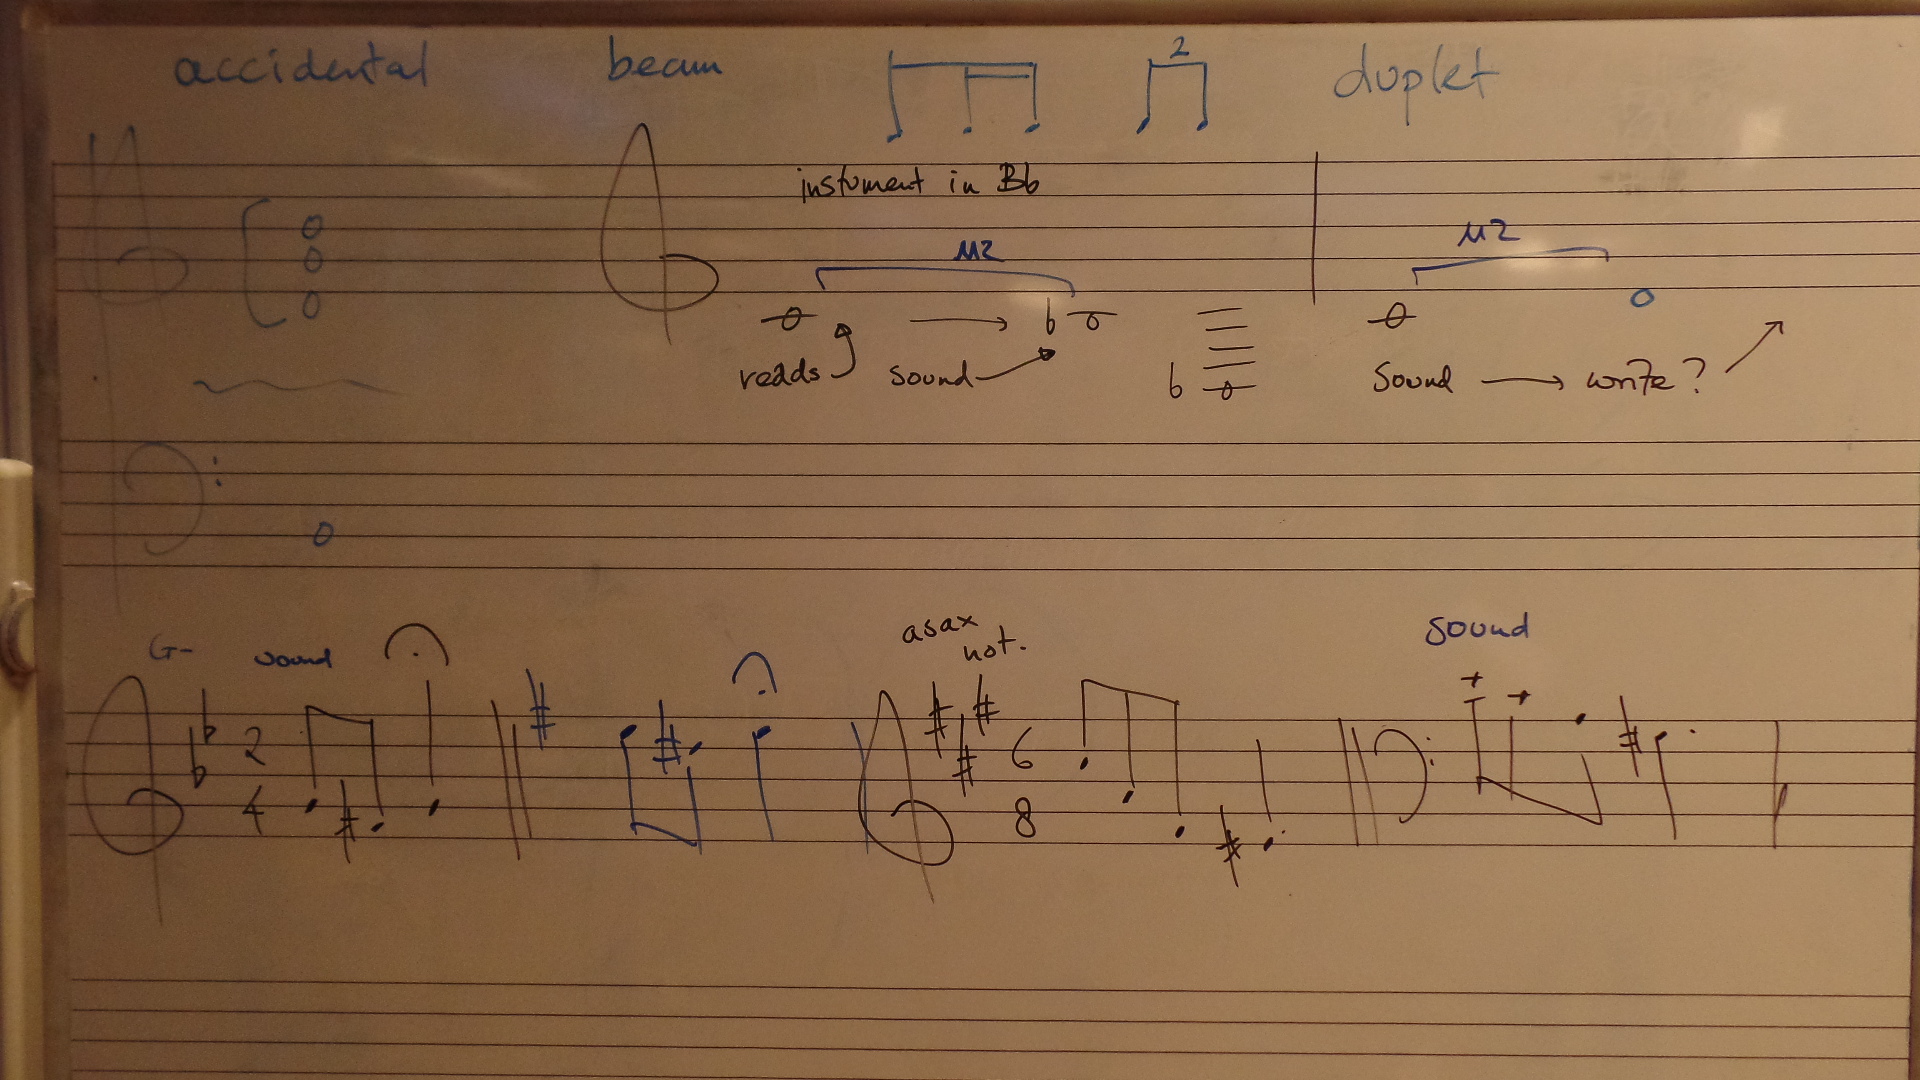 accidental beam 2 duplet
instument in Bb
M2 M2
b
reads sound b sound write?
G- sound asax not. sound
2 4 6 8